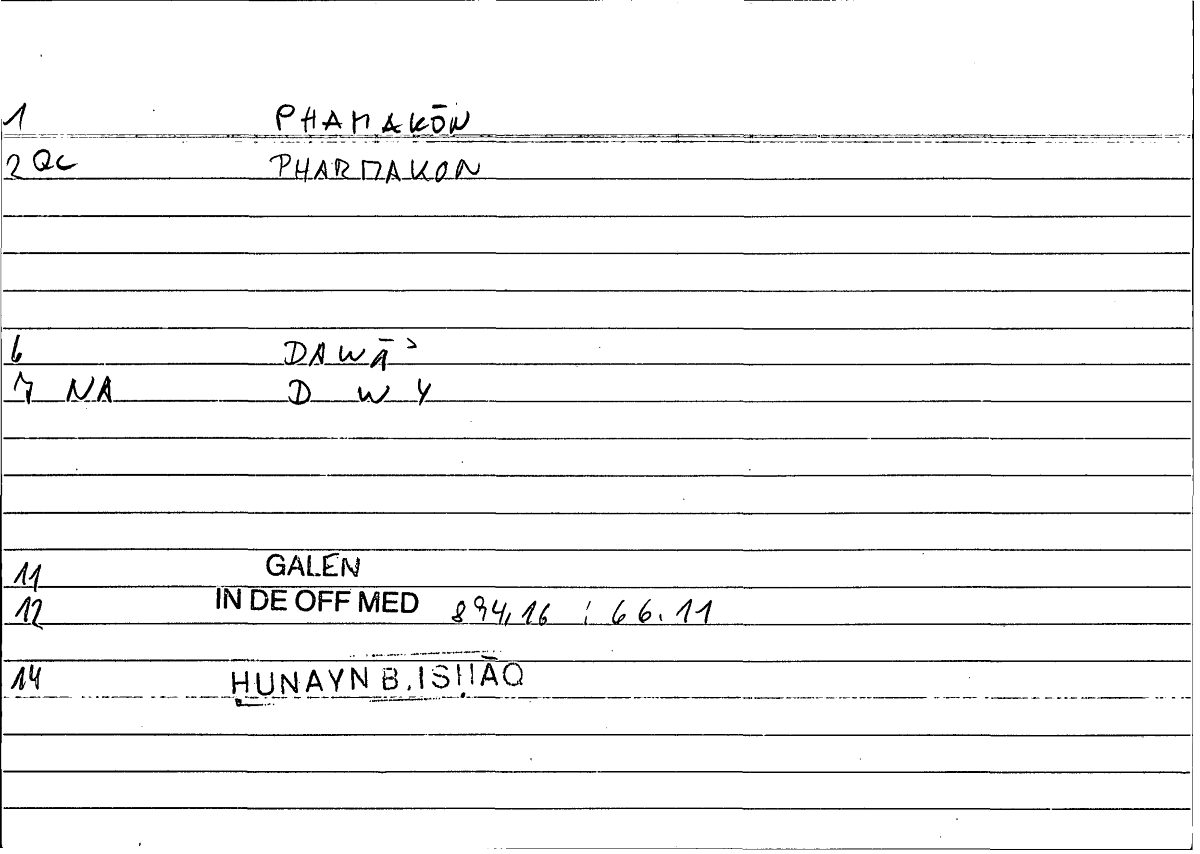 1 PHAMAKŌN
2 QC PHARMAKON
6 DAWĀʾ
7 NA D W Y
11 GALEN
12 IN DE OFF MED 894,16 : 66.11
14 HUNAYN B. ISḤĀQ